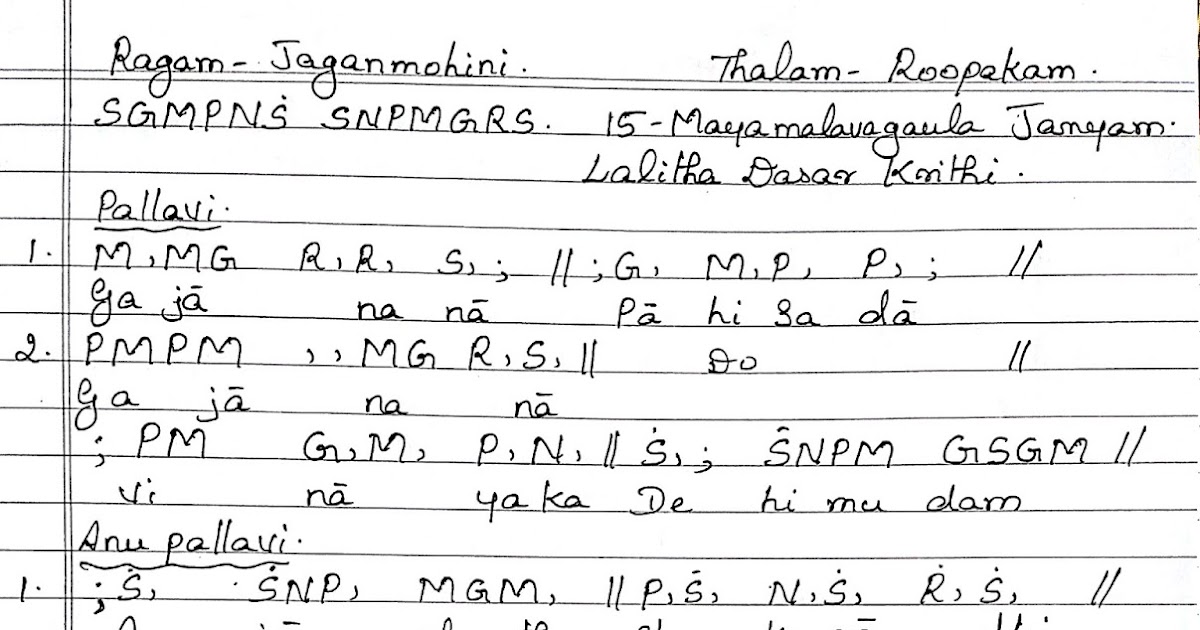 Ragam - Jaganmohini. Thalam - Roopakam.
SGMPNṠ SNPMGRS. 15 - Mayamalavagaula Janyam.
Lalitha Dasar Krithi.
Pallavi.
1. M,MG R,R, S,; // ;G, M,P, P,; //
Ga jā na nā Pā hi Sa dā
2. PMPM ,,MG R,S, // Do //
Ga jā na nā
; PM G,M, P,N, // Ṡ,; ṠNPM GSGM //
vi nā ya ka De hi mu dam
Anu pallavi.
1. ;Ṡ, ṠNP, MGM, // P,Ṡ, N,Ṡ, Ṙ,Ṡ, //